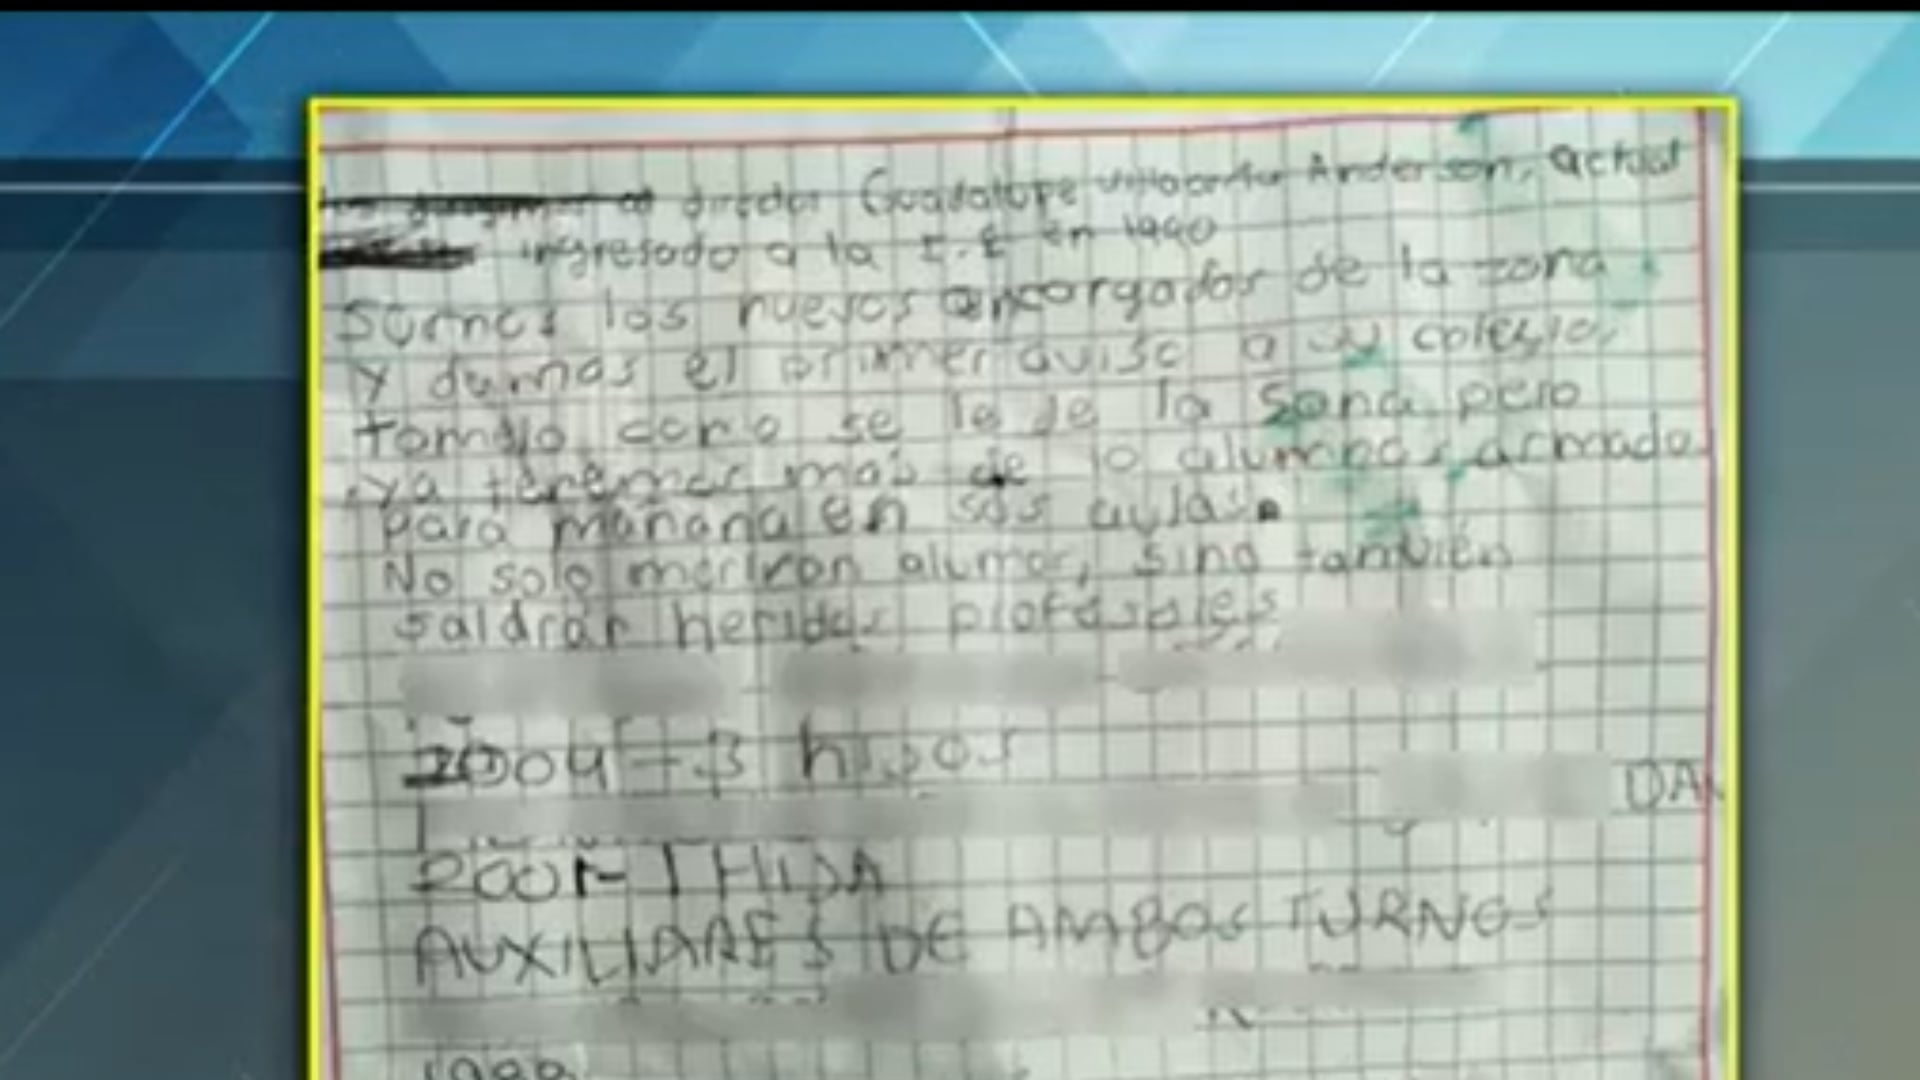 al director Guadalupe Anderson, actual
ingresado a la I.E en 1990
Somos los nuevos encargados de la zona
y damos el primer aviso a su colegio,
tomelo como se le de la Sona pero
ya tenemos mas de 10 alumnos armado
para mañana en sus aulas.
No solo moriran alumos, sino tamvién
saldrar heridos profesores
2004 - 3 hijos
DA
2001 - 1 HIJA
AUXILIARES DE AMBOS TURNOS
1988